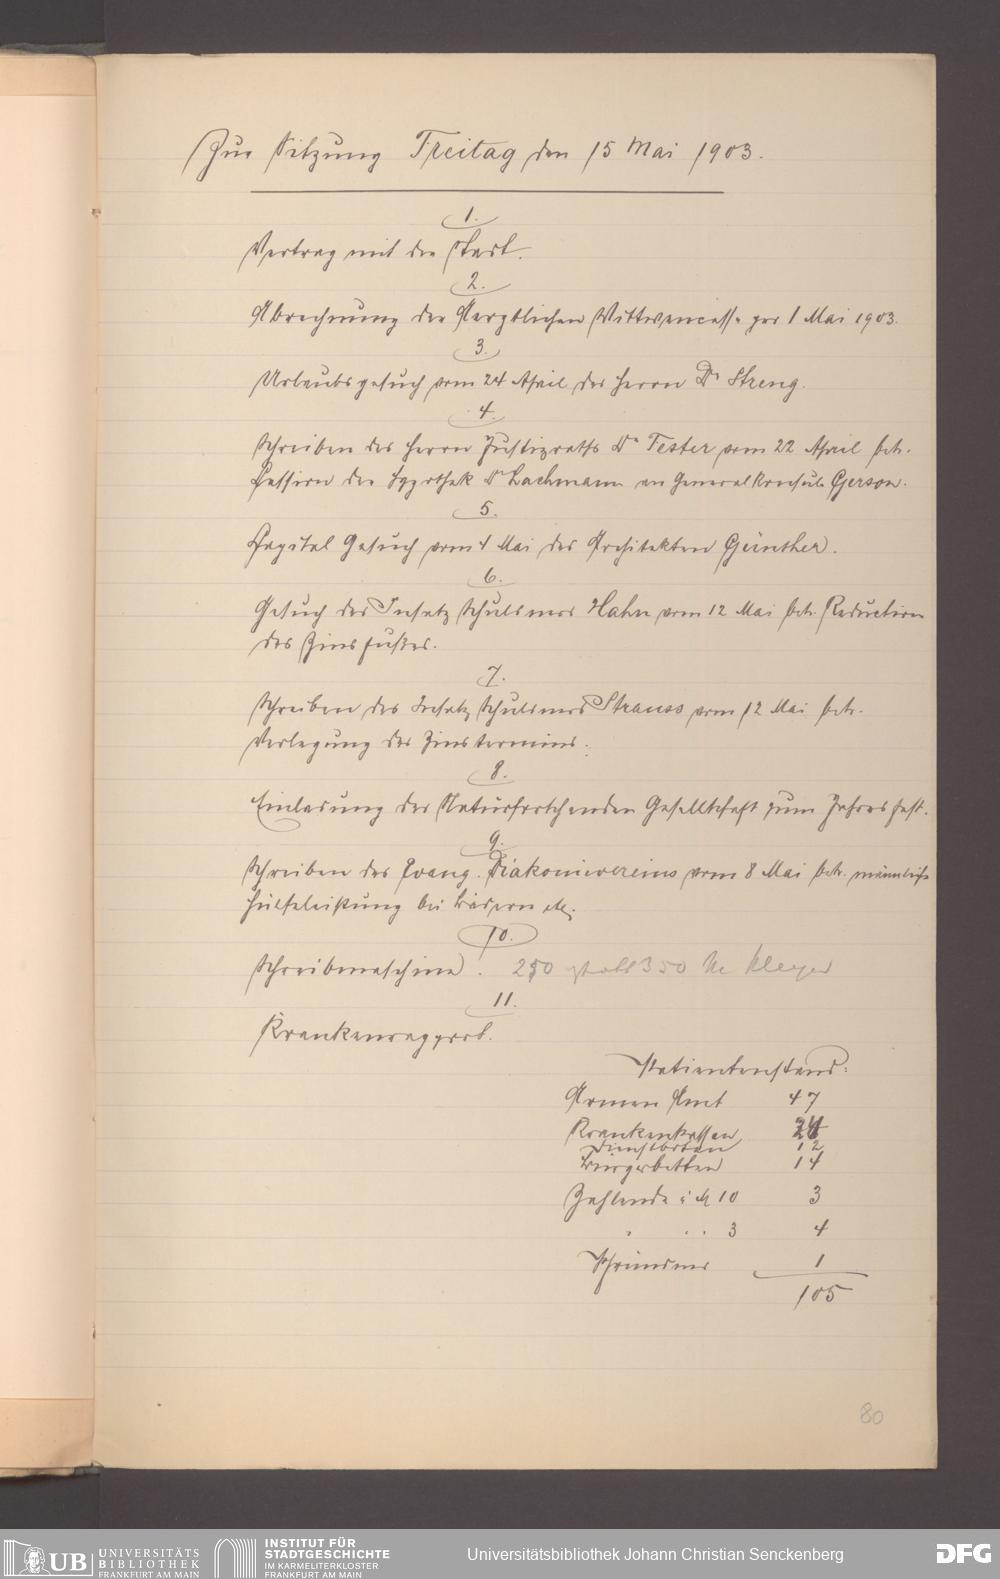 Zur Sitzung Freitag den 15 Mai 1903.
1.
Vertrag mit der Stadt.
2.
Abrechnung der Aerztlichen Wittwencasse per 1 Mai 1903.
3.
Urlaubsgesuch vom 24 April des Herrn Dr Streng.
4.
Schreiben des Herrn Justizraths Dr Tester vom 22 April betr.
Cession der Hypothek Dr Lachmann an Generalkonsul Gerson.
5.
Capital Gesuch vom 4 Mai des Architekten Günther.
6.
Gesuch des Insatz Schuldners Hahn vom 12 Mai betr. Reduction
des Zinsfußes.
7.
Schreiben des Insatz Schuldners Strauss vom 12 Mai betr.
Verlegung des Zinstermins.
8.
Einladung der Naturforschenden Gesellschaft zum Jahresfest.
9.
Schreiben des Evang. Diakonievereins vom 8 Mai betr. männliche
Hülfeleistung bei Bädern etc.
10.
Schreibmaschine. 250 statt 350 M Kleyer
11.
Krankenrapport.
Patientenstand:
Armen Amt 47
Krankenkassen 24
Dienstboten 12
Bürgerbetten 14
Zahlende à M 10 3
" " " 3 4
Pfründner 1
105
80
UB UNIVERSITÄTS
BIBLIOTHEK
FRANKFURT AM MAIN
INSTITUT FÜR
STADTGESCHICHTE
IM KARMELITERKLOSTER
FRANKFURT AM MAIN
Universitätsbibliothek Johann Christian Senckenberg
DFG